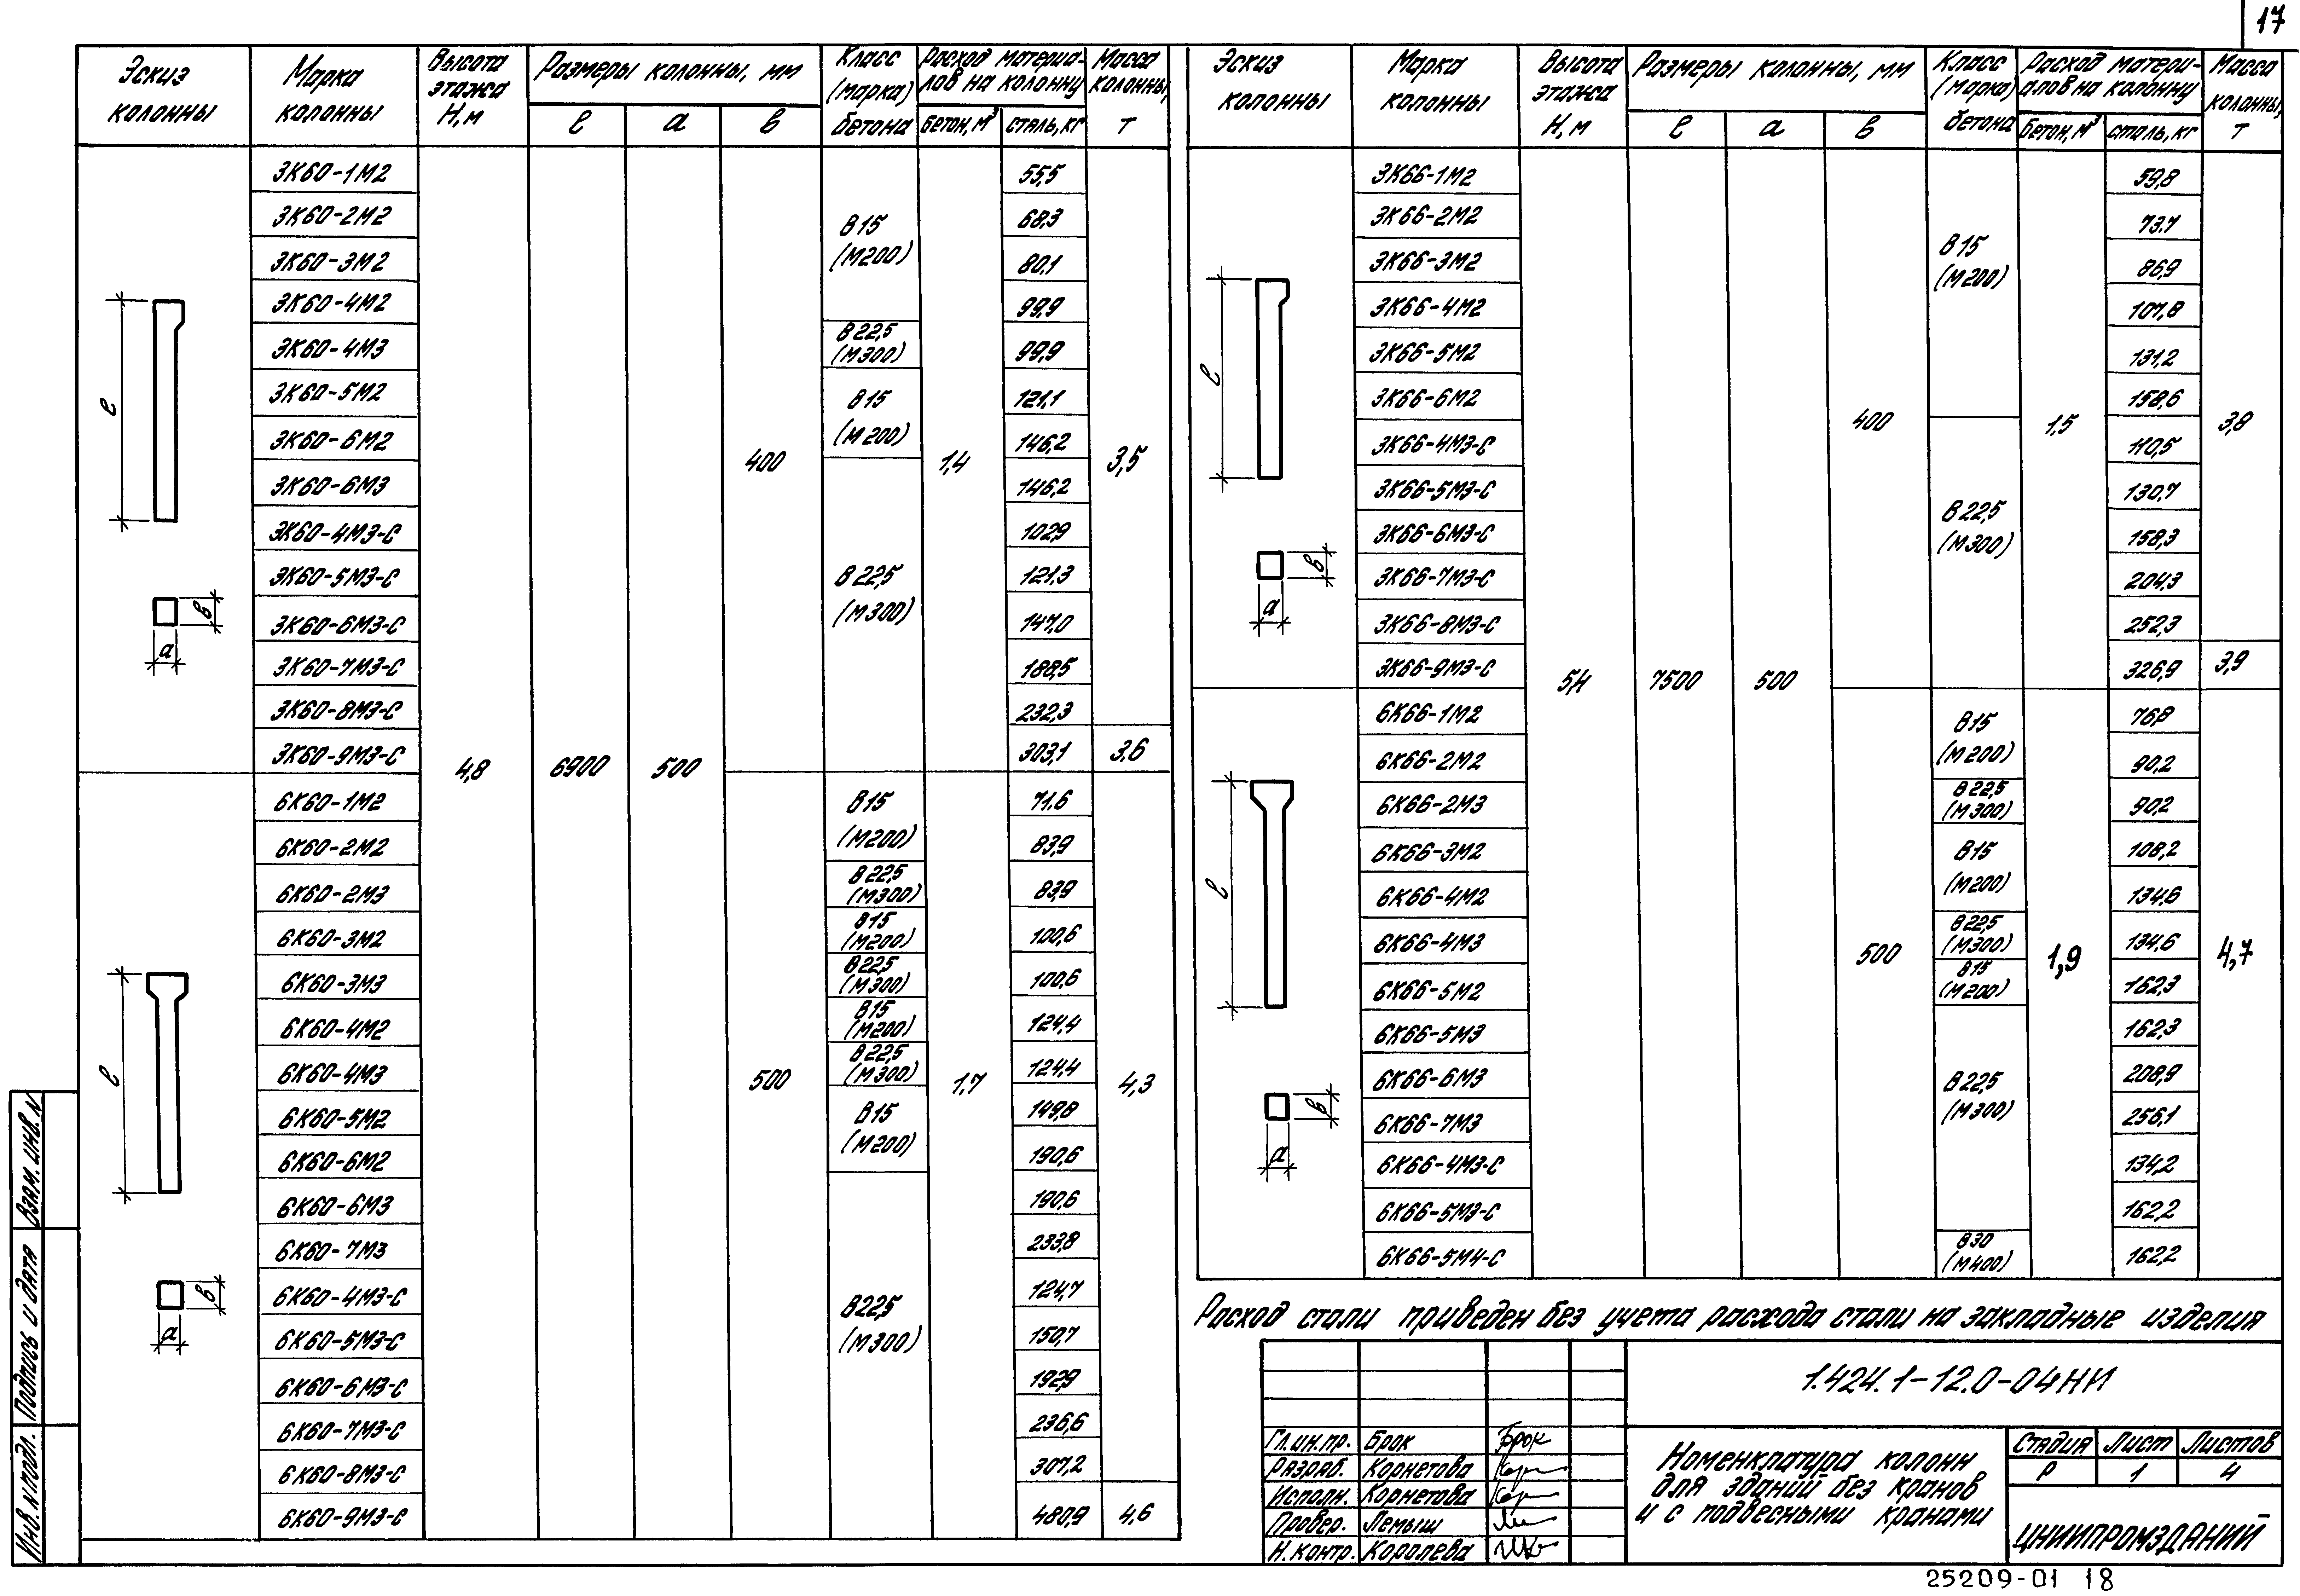 17
Эскиз колонны | Марка колонны | Высота этажа Н,м | Размеры колонны, мм | Класс (марка) бетона | Расход материалов на колонну | Масса колонны, т
ℓ | а | в | бетон, м³ | сталь, кг
3К60-1М2 55,5
3К60-2М2 68,3
В15 (М200)
3К60-3М2 80,1
3К60-4М2 99,9
3К60-4М3 В22,5 (М300) 99,9
3К60-5М2 В15 121,1
3К60-6М2 (М200) 146,2
400 1,4 3,5
3К60-6М3 146,2
3К60-4М3-С 102,9
3К60-5М3-С В22,5 121,3
3К60-6М3-С (М300) 147,0
3К60-7М3-С 188,5
3К60-8М3-С 232,3
3К60-9М3-С 303,1 3,6
4,8 6900 500
6К60-1М2 В15 71,6
6К60-2М2 (М200) 83,9
6К60-2М3 В22,5 (М300) 83,9
6К60-3М2 В15 (М200) 100,6
6К60-3М3 В22,5 (М300) 100,6
6К60-4М2 В15 (М200) 124,4
6К60-4М3 В22,5 (М300) 124,4
500 1,7 4,3
6К60-5М2 В15 149,8
6К60-6М2 (М200) 190,6
6К60-6М3 190,6
6К60-7М3 233,8
6К60-4М3-С В22,5 124,7
6К60-5М3-С (М300) 150,7
6К60-6М3-С 192,9
6К60-7М3-С 236,6
6К60-8М3-С 307,2
6К60-9М3-С 480,9 4,6
ℓ
а в
ℓ
а в
Эскиз колонны | Марка колонны | Высота этажа Н,м | Размеры колонны, мм | Класс (марка) бетона | Расход материалов на колонну | Масса колонны, т
ℓ | а | в | бетон, м³ | сталь, кг
3К66-1М2 59,8
3К66-2М2 73,7
3К66-3М2 В15 (М200) 86,9
3К66-4М2 107,8
3К66-5М2 131,2
3К66-6М2 158,6
400 1,5 3,8
3К66-4М3-С 110,5
3К66-5М3-С 130,7
3К66-6М3-С В22,5 (М300) 158,3
3К66-7М3-С 204,3
3К66-8М3-С 252,3
3К66-9М3-С 326,9 3,9
5,4 7500 500
6К66-1М2 В15 76,8
6К66-2М2 (М200) 90,2
6К66-2М3 В22,5 (М300) 90,2
6К66-3М2 В15 108,2
6К66-4М2 (М200) 134,6
6К66-4М3 В22,5 (М300) 134,6
500 1,9 4,7
6К66-5М2 В15 (М200) 162,3
6К66-5М3 162,3
6К66-6М3 В22,5 208,9
6К66-7М3 (М300) 256,1
6К66-4М3-С 134,2
6К66-5М3-С 162,2
6К66-5М4-С В30 (М400) 162,2
ℓ
а в
ℓ
а в
Расход стали приведен без учета расхода стали на закладные изделия
1.424.1-12.0-04НИ
Гл.ин.пр. Брок Брок
Разраб. Корнетова
Исполн. Корнетова
Провер. Лемыш
Н.контр. Королева
Номенклатура колонн
для зданий без кранов
и с подвесными кранами
Стадия Лист Листов
Р 1 4
ЦНИИПРОМЗДАНИЙ
Взам. инв. N
Подпись и дата
Инв. N подл.
25209-01 18